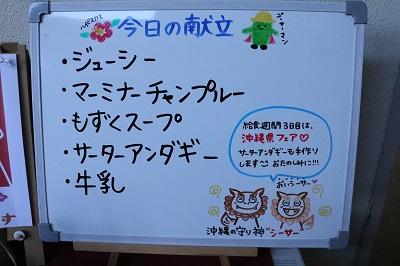 今日の献立
・ジューシー
・マーミナーチャンプルー
・もずくスープ
・サーターアンダギー
・牛乳
給食週間3日目は、
沖縄県フェア♡
サーターアンダギーも手作り
します おたのしみに!!!
おいシーサー♥
沖縄の守り神"シーサー"
す